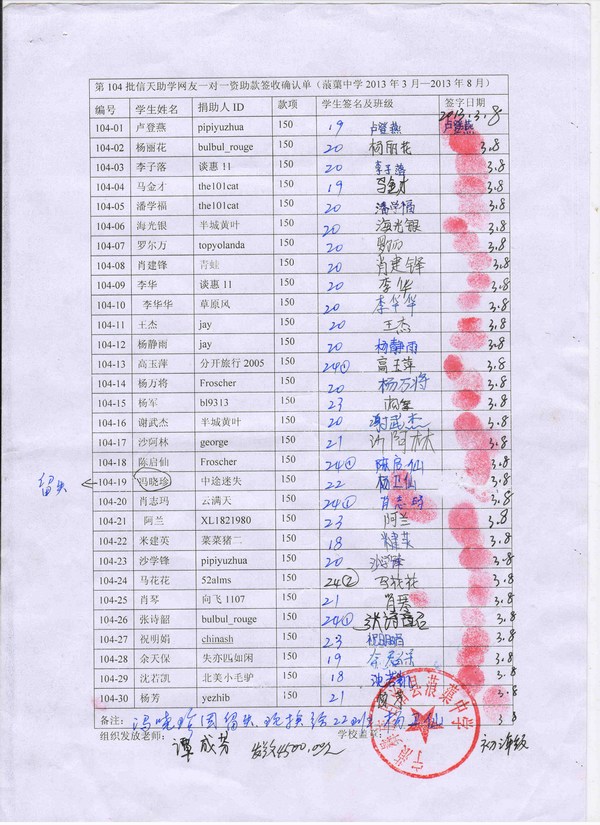 第 104 批信天助学网友一对一资助款签收确认单（蕻蕖中学 2013 年 3 月—2013 年 8 月）
编号 学生姓名 捐助人 ID 款项 学生签名及班级 签字日期
2013.3.8
104-01 卢登燕 pipiyuzhua 150 19 卢登燕 卢登燕
104-02 杨丽花 bulbul_rouge 150 20 杨丽花 3.8
104-03 李子落 谈惠 11 150 20 李子落 3.8
104-04 马金才 the101cat 150 19 马金才 3.8
104-05 潘学福 the101cat 150 20 潘学福 3.8
104-06 海光银 半城黄叶 150 20 海光银 3.8
104-07 罗尔万 topyolanda 150 20 3.8
104-08 肖建锋 青蛙 150 20 肖建锋 3.8
104-09 李华 谈惠 11 150 20 李华 3.8
104-10 李华华 草原风 150 20 李华华 3.8
104-11 王杰 jay 150 20 王杰 3.8
104-12 杨静雨 jay 150 20 杨静雨 3.8
104-13 高玉萍 分开旅行 2005 150 24① 高玉萍 3.8
104-14 杨万将 Froscher 150 20 杨万将 3.8
104-15 杨军 bl9313 150 23 杨军 3.8
104-16 谢武杰 半城黄叶 150 20 谢武杰 3.8
104-17 沙阿林 george 150 21 沙阿林 3.8
104-18 陈启仙 Froscher 150 24① 陈启仙 3.8
留失 104-19 冯晓珍 中途迷失 150 22 杨卫仙 3.8
104-20 肖志玛 云满天 150 24① 肖志玛 3.8
104-21 阿兰 XL1821980 150 23 阿兰 3.8
104-22 米建英 菜菜猪二 150 18 米建英 3.8
104-23 沙学锋 pipiyuzhua 150 20 沙学锋 3.8
104-24 马花花 52alms 150 24② 马花花 3.8
104-25 肖琴 向飞 1107 150 21 肖琴 3.8
104-26 张诗韶 bulbul_rouge 150 24① 张诗韶 3.8
104-27 祝明娟 chinash 150 23 祝明娟 3.8
104-28 余天保 失亦匹如闲 150 19 余天保 3.8
104-29 沈若凯 北美小毛驴 150 18 沈若凯 3.8
104-30 杨芳 yezhib 150 21 杨芳 3.8
备注： 冯晓珍因留失,现换给22班杨卫仙 3.8
组织发放老师： 谭成芳 发给4500.00元 学校盖章： 初泽级